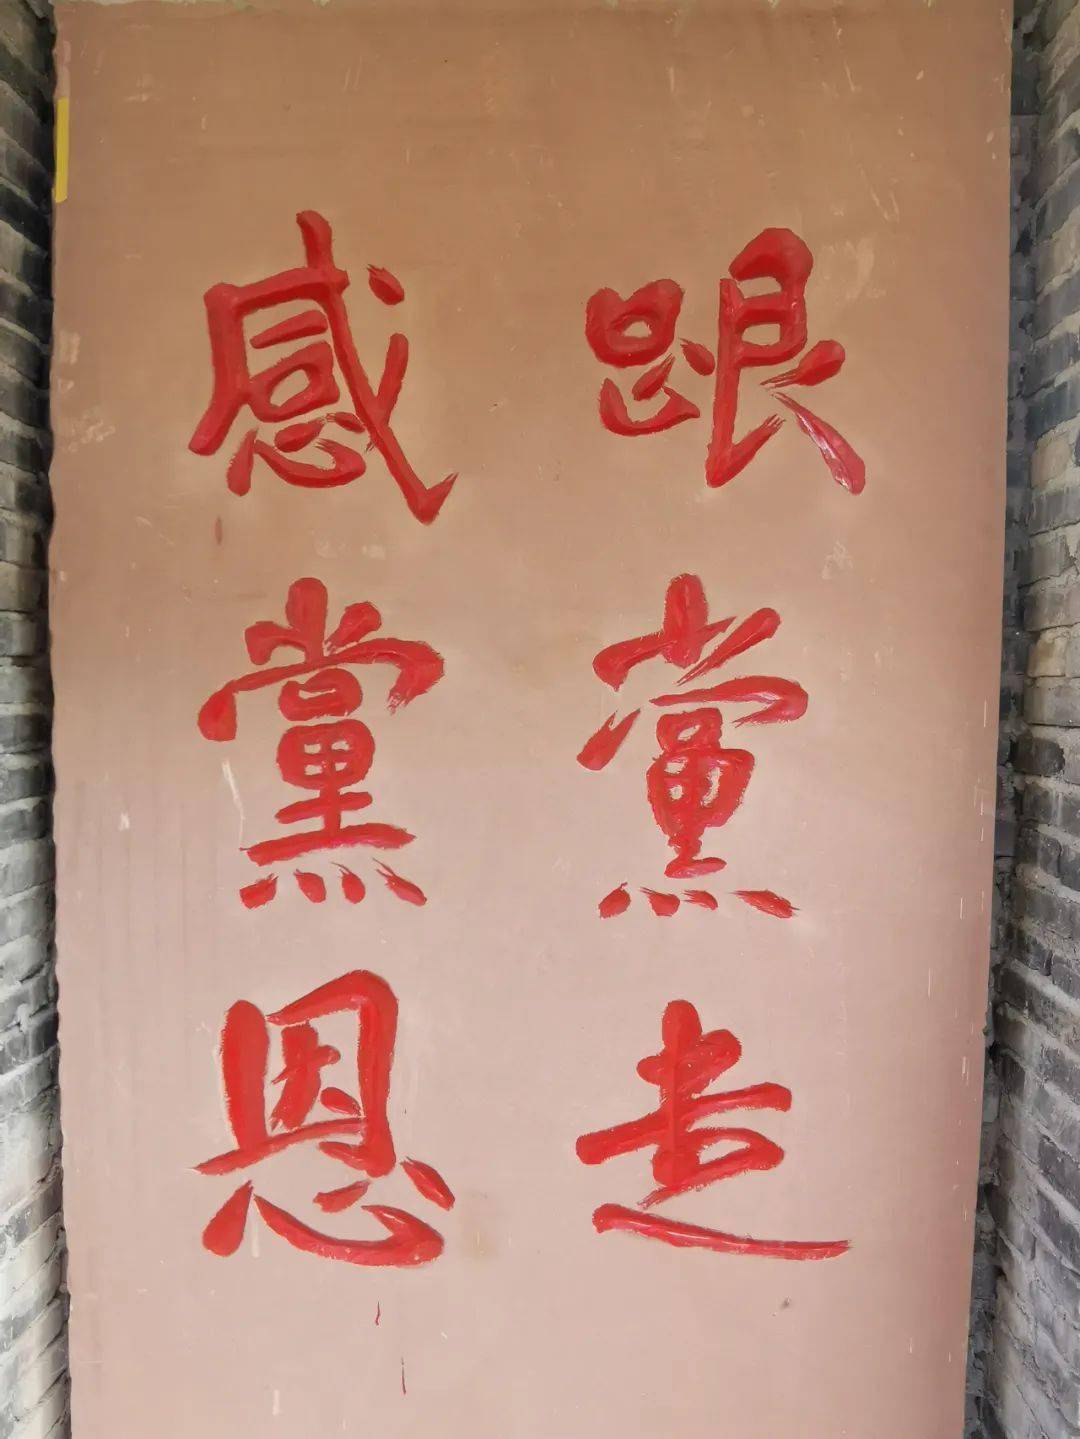 感黨恩
跟黨走